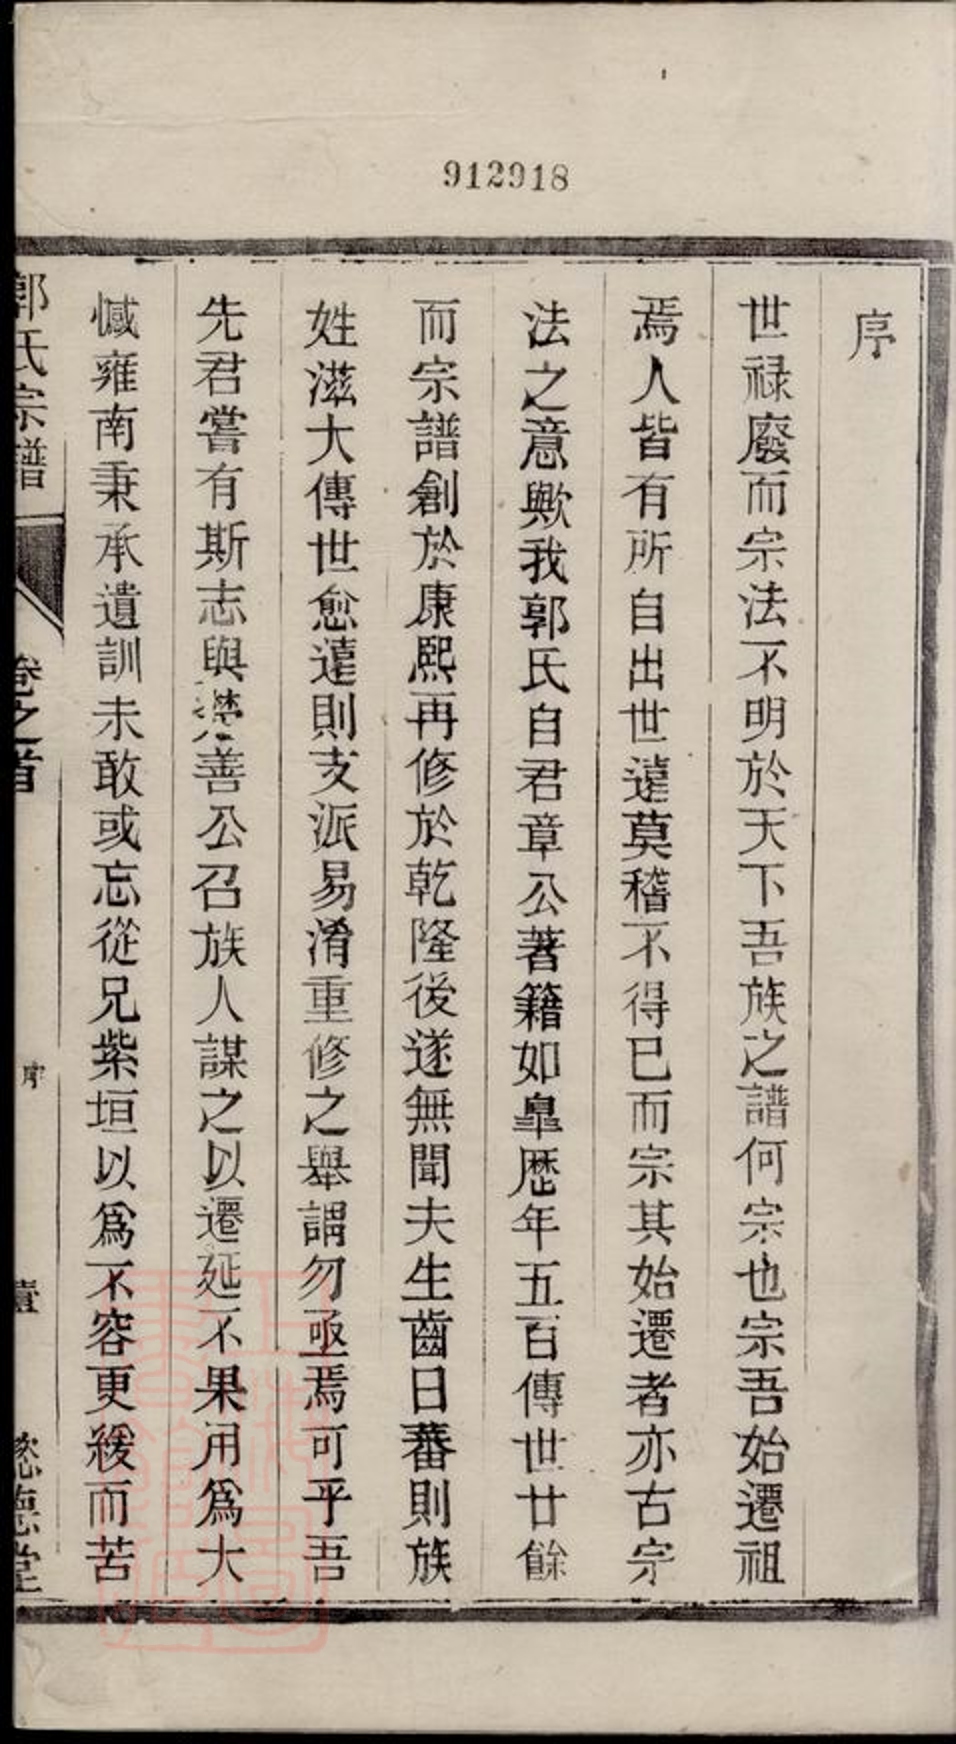 912918
序
世祿廢而宗法不明於天下吾族之譜何宗也宗吾始遷祖
焉人皆有所自出世遠莫稽不得已而宗其始遷者亦古宗
法之意歟我郭氏自君章公著籍如臯歷年五百傳世廿餘
而宗譜創於康熙再修於乾隆後遂無聞夫生齒日蕃則族
姓滋大傳世愈遠則支派易淆重修之舉謂勿亟焉可乎吾
先君嘗有斯志與懋善公召族人謀之以遷延不果用爲大
憾雍南秉承遺訓未敢或忘從兄紫垣以爲不容更緩而苦
郭氏宗譜 卷之首 序 壹 德堂